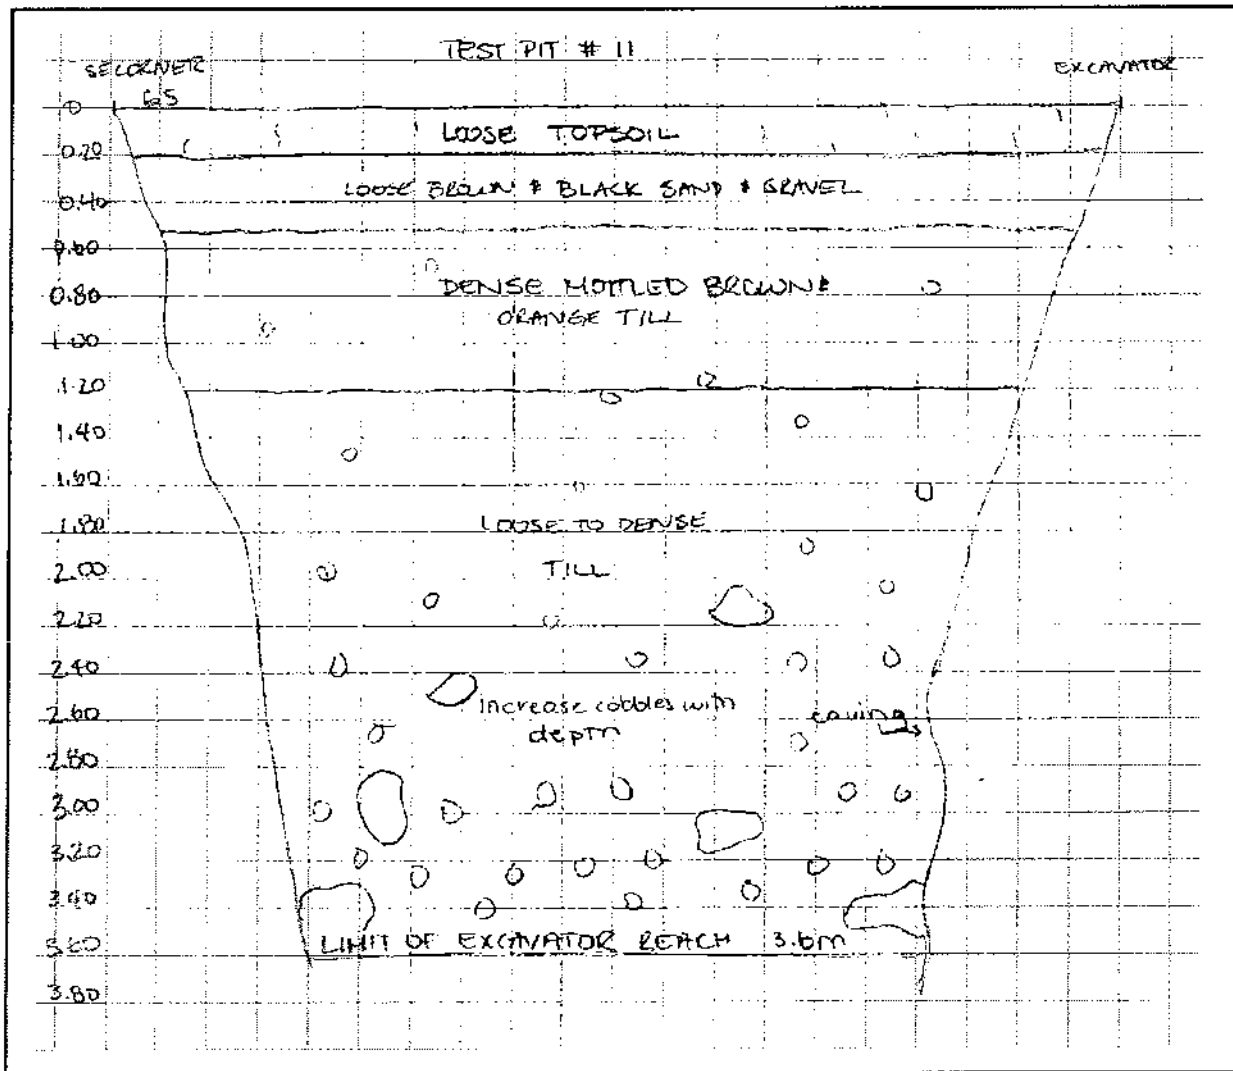 TEST PIT # 11
SE CORNER
EXCAVATOR
GS
0
LOOSE TOPSOIL
0.20
LOOSE BROWN & BLACK SAND & GRAVEL
0.40
0.60
DENSE MOTTLED BROWN &
0.80
ORANGE TILL
1.00
1.20
1.40
1.60
LOOSE TO DENSE
1.80
TILL
2.00
2.20
2.40
Increase cobbles with
2.60
caving
depth
2.80
3.00
3.20
3.40
LIMIT OF EXCAVATOR REACH 3.6m
3.60
3.80